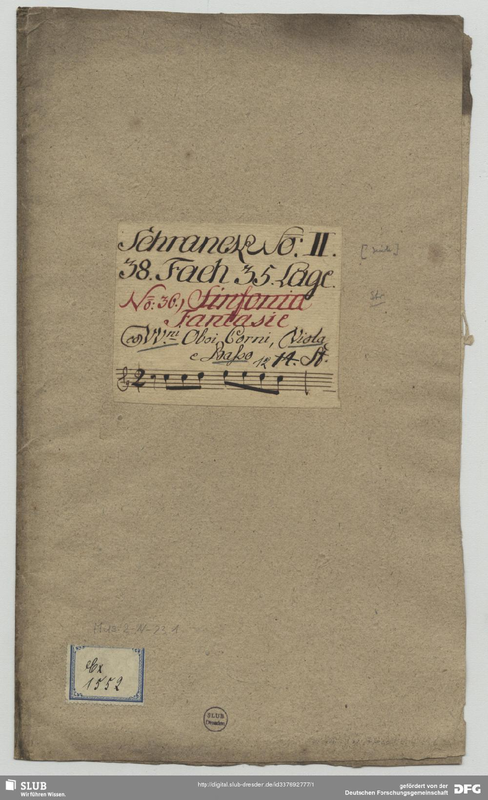 Schranck No: II.
38. Fach 35. Lage.
No: 36.) Sinfonia
Fantasie
co VVni Oboi, Corni, Viola
e Basso 12 14. St.
2
Cx
1552
SLUB
Dresden
SLUB
Wir führen Wissen.
http://digital.slub-dresden.de/id337692777/1
gefördert von der
Deutschen Forschungsgemeinschaft
DFG